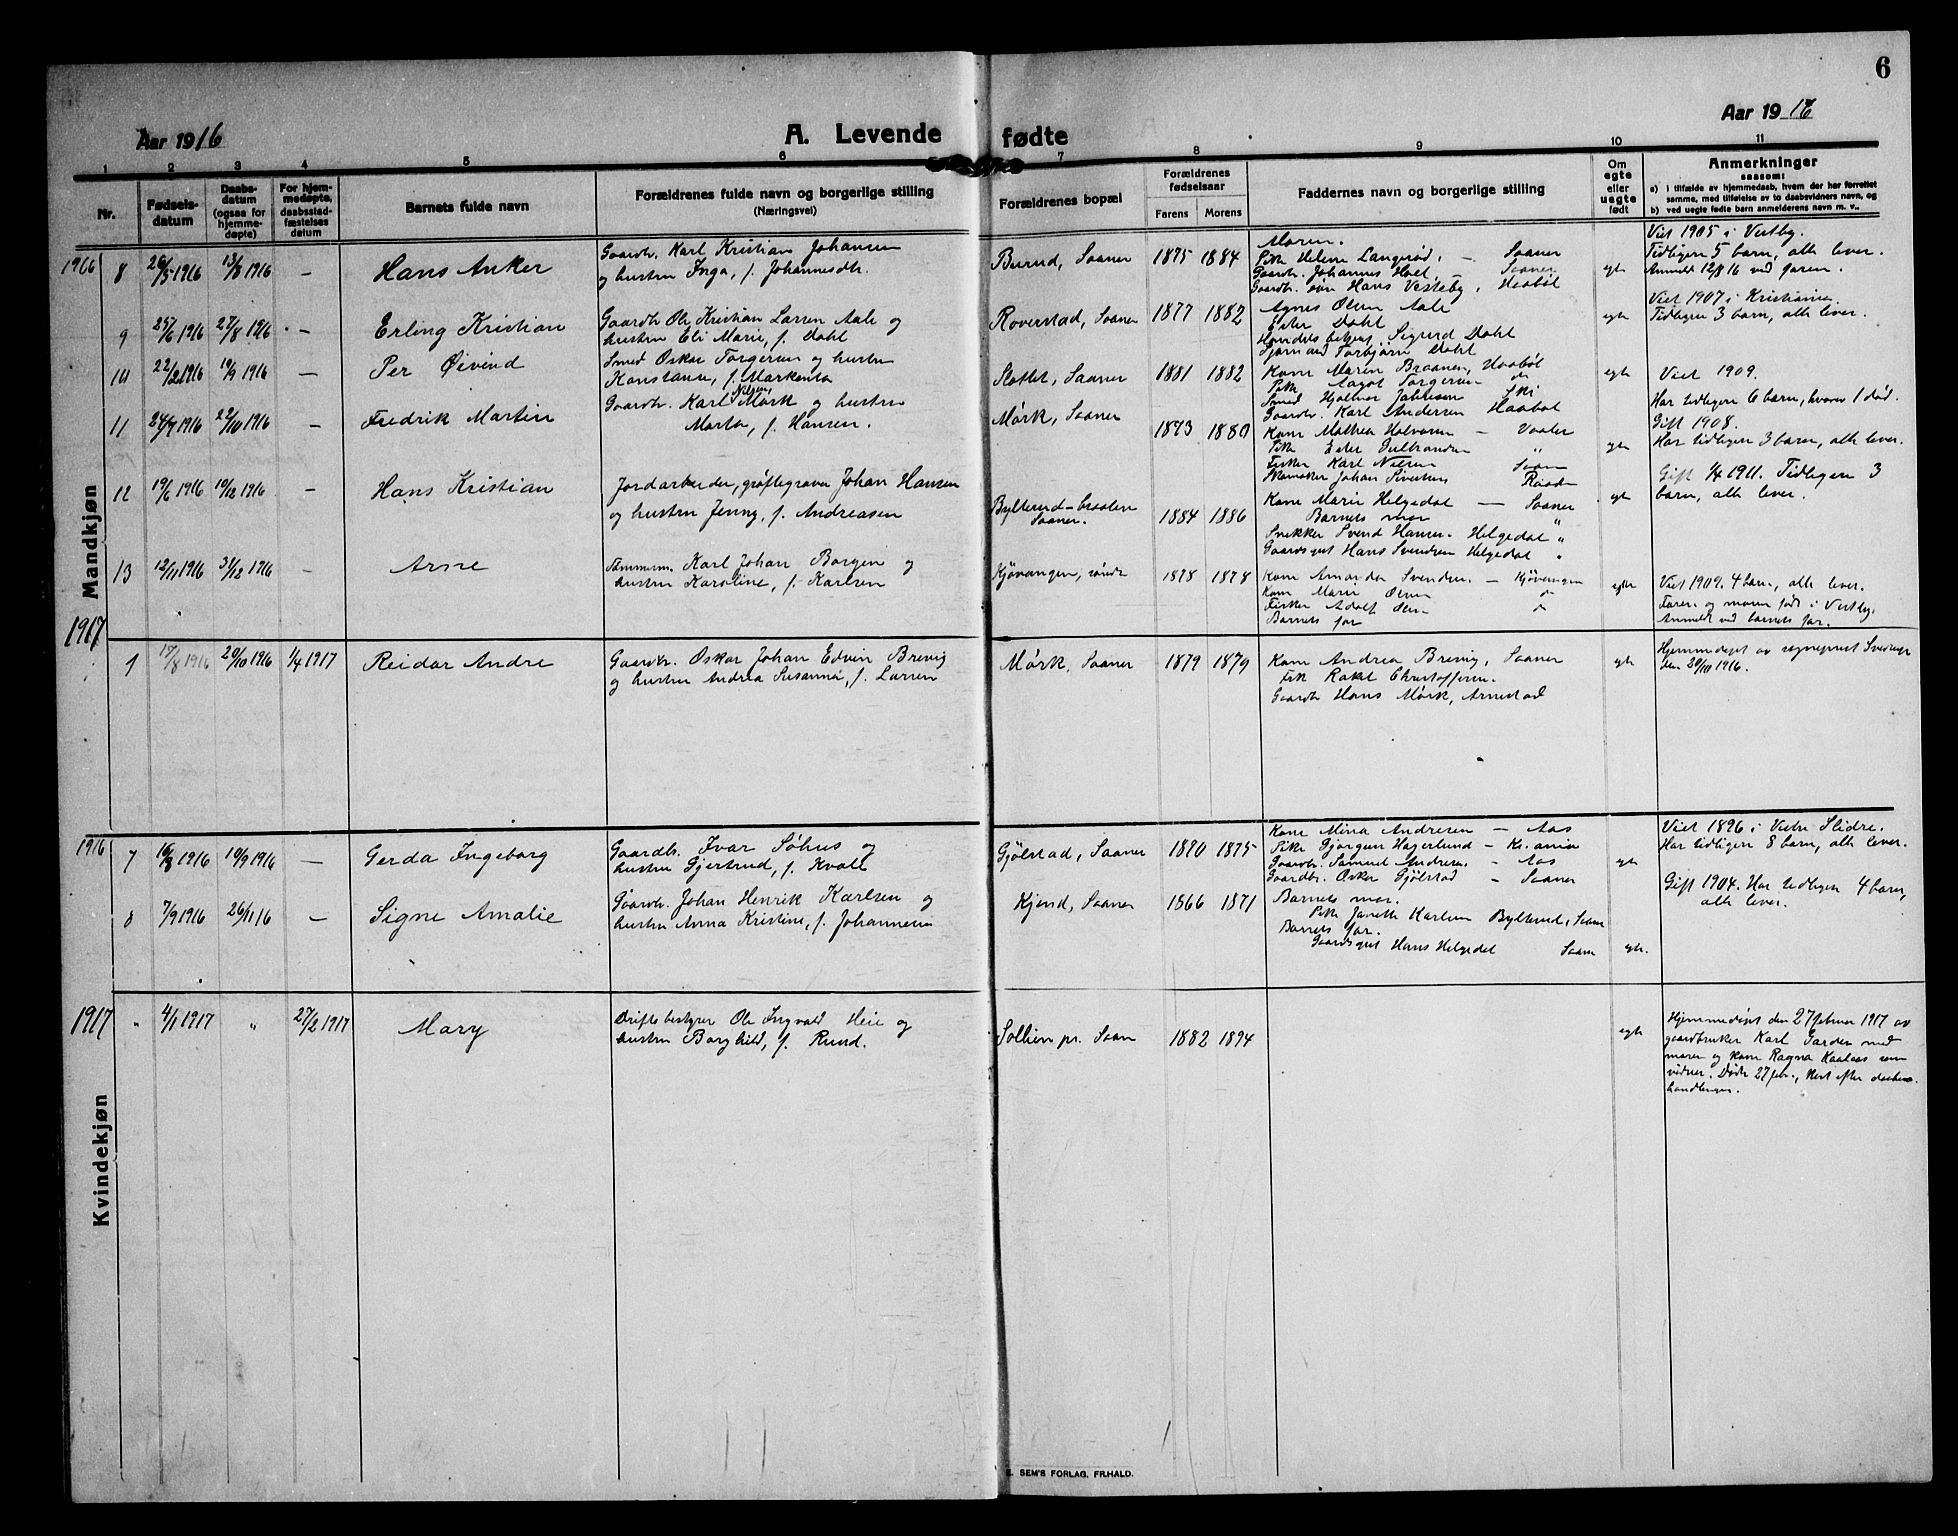 6
Aar 1916
A. Levende fødte
Aar 1916
1 2 3 4 5 6 7 8 9 10 11
Nr.
Fødsels-
datum
Daabs-
datum
(ogsaa for
hjemme-
døpte)
For hjem-
medøpte,
daabsstad-
fæstelses
datum
Barnets fulde navn
Forældrenes fulde navn og borgerlige stilling
(Næringsvei)
Forældrenes bopæl
Forældrenes
fødselsaar
Farens Morens
Faddernes navn og borgerlige stilling
Om
egte
eller
uegte
født
Anmerkninger
saasom:
a) i tilfælde av hjemmedaab, hvem der har forrettet
samme, med tilføielse av to daabsvidners navn, og
b) ved uegte fødte barn anmelderens navn m. v..
Mandkjøn
1916
8 26/5 1916 13/8 1916 — Hans Anker
Gaardbr. Karl Kristian Johansen
og hustru Inga, f. Johannesdtr.
Burud, Saaner 1875 1884
Moren.
Pike Helene Langerød, — Saaner
Gaardbr. Johannes Hoel — Saaner
Gaardbr. søn Hans Vesteby, Haabøl
egte
Viet 1905 i Vestby.
Tidligere 5 barn, alle lever.
Anmeldt 12/8 16 ved faren.
9 25/6 1916 27/8 1916 — Erling Kristian
Gaardb. Ole Kristian Larsen Aale og
hustru Eli Marie, f. Dahl
Roverstad, Saaner 1877 1882
Agnes Olsen Aale
Ester Dahl
Handelsbetjent Sigurd Dahl
Sjømand Torbjørn Dahl
egte
Viet 1907 i Kristiania.
Tidligere 3 barn, alle lever.
10 22/2 1916 10/9 1916 — Per Øivind
Smed Oskar Torgersen og hustru
Konstanse, f. Markenta
Slottet, Saaner 1881 1882
Kone Maren Braanen, Haabøl
Pike Aagot Torgersen do
Smed Hjalmar Jakobsen Ski
Gaardbr. Karl Andersen Haabøl
egte
Viet 1909.
Har tidligere 6 barn, hvorav 1 død.
11 24/7 1916 22/10 1916 — Fredrik Martin
Gaardbr. Karl Nilsen Mørk og hustru
Marta, f. Hansen.
Mørk, Saaner 1873 1880
Kone Mathea Halvorsen — Vaaler
Pike Ester Gulbrandsen "
Fisker Karl Nilsen Saaner
Skomaker Johan Sivertsen Raade
egte
Gift 1908.
Har tidligere 3 barn, alle lever.
12 19/6 1916 10/12 1916 — Hans Kristian
Jordarbeider, grøftegraver Johan Hansen
og hustru Jenny, f. Andreasen
Bylterud-braaten
Saaner. 1884 1886
Kone Marie Helgedal — Saaner
Barnets mor
Snekker Svend Hansen Helgedal "
Gaardsgut Hans Svendsen Helgedal "
egte
Gift 1/4 1911. Tidligere 3
barn, alle lever.
13 12/11 1916 31/12 1916 — Arne
Tømmerm. Karl Johan Borgen og
hustru Karoline, f. Karlsen
Kjøvangen, søndre 1878 1878
Kone Amanda Svendsen — Kjøvangen
Kone Marie Olsen do
Fisker Adolf Olsen do
Barnets far
egte
Viet 1902. 4 barn, alle lever.
Faren og moren født i Vestby.
Anmeldt ved barnets far.
1917
1 15/8 1916 20/10 1916 1/4 1917 Reidar Andre
Gaardbr. Oskar Johan Edvin Brevig
og hustru Andrea Susanna, f. Larsen
Mørk, Saaner 1879 1879
Kone Andrea Brevig, Saaner
Pik Rakel Christoffersen.
Gaardbr Hans Mørk, Arnestad
egte
Hjemmedøpt av sogneprest
den 20/10 1916.
Kvindekjøn
1916
7 16/3 1916 10/9 1916 — Gerda Ingeborg
Gaardb. Ivar Søhus og
hustru Gjertrud, f. Kvale
Gjølstad, Saaner 1870 1875
Kone Mina Andresen — Aas
Pike Gjørgine Hagerlund — Kr.ania
Gaardbr. Samuel Andresen — Aas
Gaardbr. Oskar Gjølstad — Saaner
egte
Viet 1896 i Vestre Slidre.
Har tidligere 8 barn, alle lever.
8 7/9 1916 26/11 16 — Signe Amalie
Gaardb. Johan Henrik Karlsen og
hustru Anna Kristine, f. Johannesen
Kjend, Saaner 1866 1871
Barnets mor.
Pike Janette Karlsen Bylterud, Saaner
Barnets far.
Gaardsgut Hans Helgedal Saaner
egte.
Gift 1904. Har tidligere 4 barn,
alle lever.
1917
" 4/1 1917 " 27/2 1917 Mary
Driftsbestyrer Ole Ingvald Heie og
hustru Borghild, f. Rund.
Sollien pr. Saaner 1882 1894
egte
Hjemmedøpt den 27 februar 1917 av
gaardbruker Karl Garder med
moren og kone Ragna Kaalaas som
vidner. Døde 27 febr., straks efter daabens-
handlingen.
E. SEM'S FORLAG, FR.HALD.